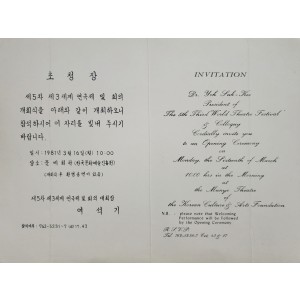 초 청 장
제5차 제3세계 연극제 및 회의
개회식을 아래와 같이 개최하오니
참석하시어 이 자리를 빛내 주시기
바랍니다.
일시 : 1981년 3월 16일 (월) 10:00
장소 : 문예회관
제5차 제3세계 연극제 및 회의 대회장
여 석 기
INVITATION
Dr. Yoh Suk-Kee
President of
The 5th Third World Theatre Festival
& Colloquy
Cordially invite you
to an Opening Ceremony
on
Monday, the Sixteenth of March
at
10:00 hrs in the Morning
at the Munye Theatre
of
the Korean Culture & Arts Foundation
N.B. please note that Welcoming
Performance will be followed
by the Opening Ceremony
R.S.V.P.